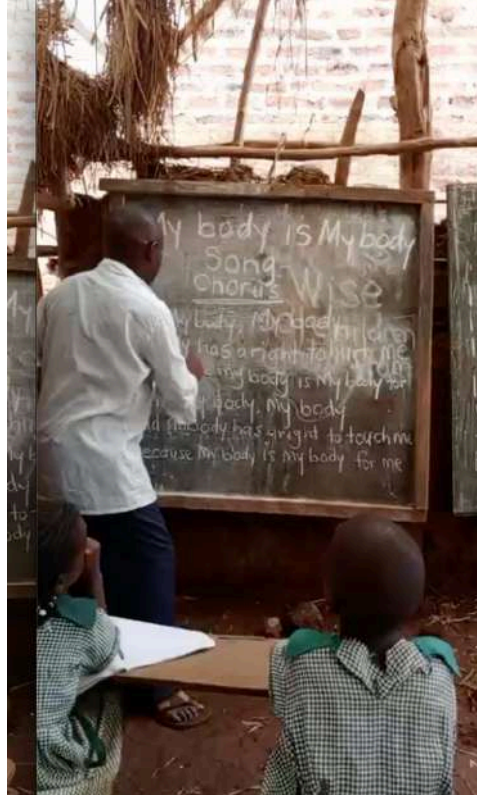 My body is My body
Song
Chorus
Wise
body, My body
children
has a right to hurt me
my body is My body for
body, My body
nobody has a right to touch me
because My body is My body for me